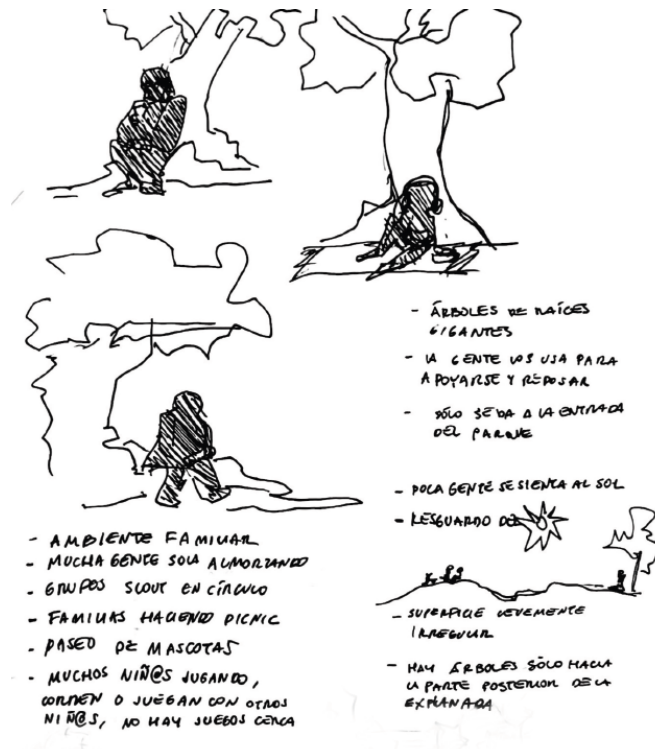 - ÁRBOLES DE RAÍCES
GIGANTES
- LA GENTE LOS USA PARA
APOYARSE Y REPOSAR
- SÓLO SE DA A LA ENTRADA
DEL PARQUE
- POCA GENTE SE SIENTA AL SOL
- RESGUARDO DEL
- SUPERFICIE LEVEMENTE
IRREGULAR
- HAY ÁRBOLES SÓLO HACIA
LA PARTE POSTERIOR DE LA
EXPLANADA
- AMBIENTE FAMILIAR
- MUCHA GENTE SOLA ALMORZANDO
- GRUPOS SCOUT EN CÍRCULO
- FAMILIAS HACIENDO PICNIC
- PASEO DE MASCOTAS
- MUCHOS NIÑ@S JUGANDO,
CORREN O JUEGAN CON OTROS
NIÑ@S, NO HAY JUEGOS CERCA